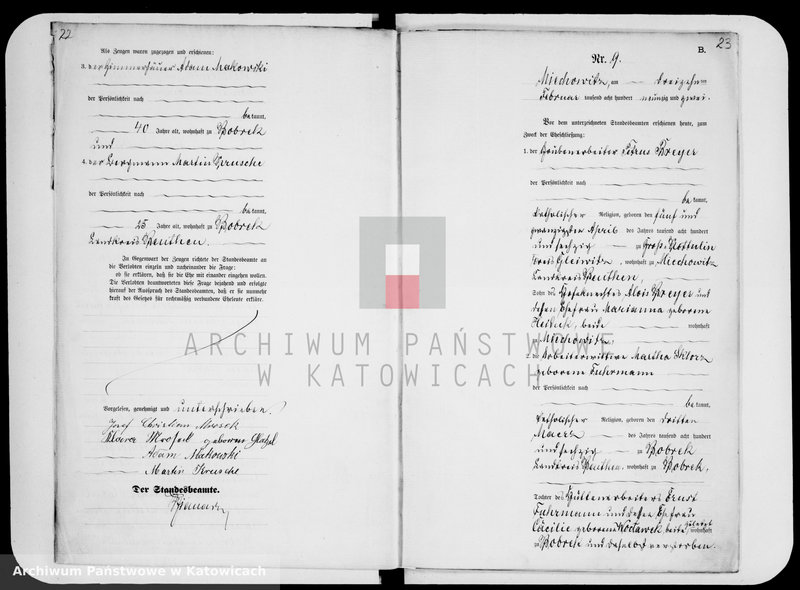 22
Als Zeugen waren zugezogen und erschienen:
3. der Häuer Adam Makowski
der Persönlichkeit nach
bekannt,
40 Jahre alt, wohnhaft zu Bobrek
und
4. der Bergmann Martin
der Persönlichkeit nach
bekannt,
25 Jahre alt, wohnhaft zu Bobrek
Landkreis Beuthen.
In Gegenwart der Zeugen richtete der Standesbeamte an
die Verlobten einzeln und nacheinander die Frage:
ob sie erklären, daß sie die Ehe mit einander eingehen wollen.
Die Verlobten beantworteten diese Frage bejahend und erfolgte
hierauf der Ausspruch des Standesbeamten, daß er sie nunmehr
kraft des Gesetzes für rechtmäßig verbundene Eheleute erkläre.
Vorgelesen, genehmigt und unterschrieben.
Josef Christian
geborene
Adam Makowski
Martin
Der Standesbeamte.
23
B.
Nr. 9.
Miechowitz, am dreizehnten
Februar tausend acht hundert neunzig und zwei.
Vor dem unterzeichneten Standesbeamten erschienen heute, zum
Zweck der Eheschließung:
1. der Grubenarbeiter Petrus
der Persönlichkeit nach
bekannt,
katholischer Religion, geboren den fünf und
zwanzigsten April des Jahres tausend acht hundert
und sechzig zu Groß
Kreis Gleiwitz, wohnhaft zu Miechowitz
Landkreis Beuthen,
Sohn des Alois und
dessen Ehefrau Marianna geborene
beide wohnhaft
zu Miechowitz,
2. die Arbeiterwittwe Martha
geborene Fuhrmann
der Persönlichkeit nach
bekannt,
katholischer Religion, geboren den dritten
Maerz des Jahres tausend acht hundert
und sechzig zu Bobrek
Landkreis Beuthen, wohnhaft zu Bobrek,
Tochter des Hüttenarbeiters Ernst
Fuhrmann und dessen Ehefrau
Cäcilie geborene beide zuletzt wohnhaft
zu Bobrek und daselbst verstorben.
ARCHIWUM PAŃSTWOWE
W KATOWICACH
Archiwum Państwowe w Katowicach